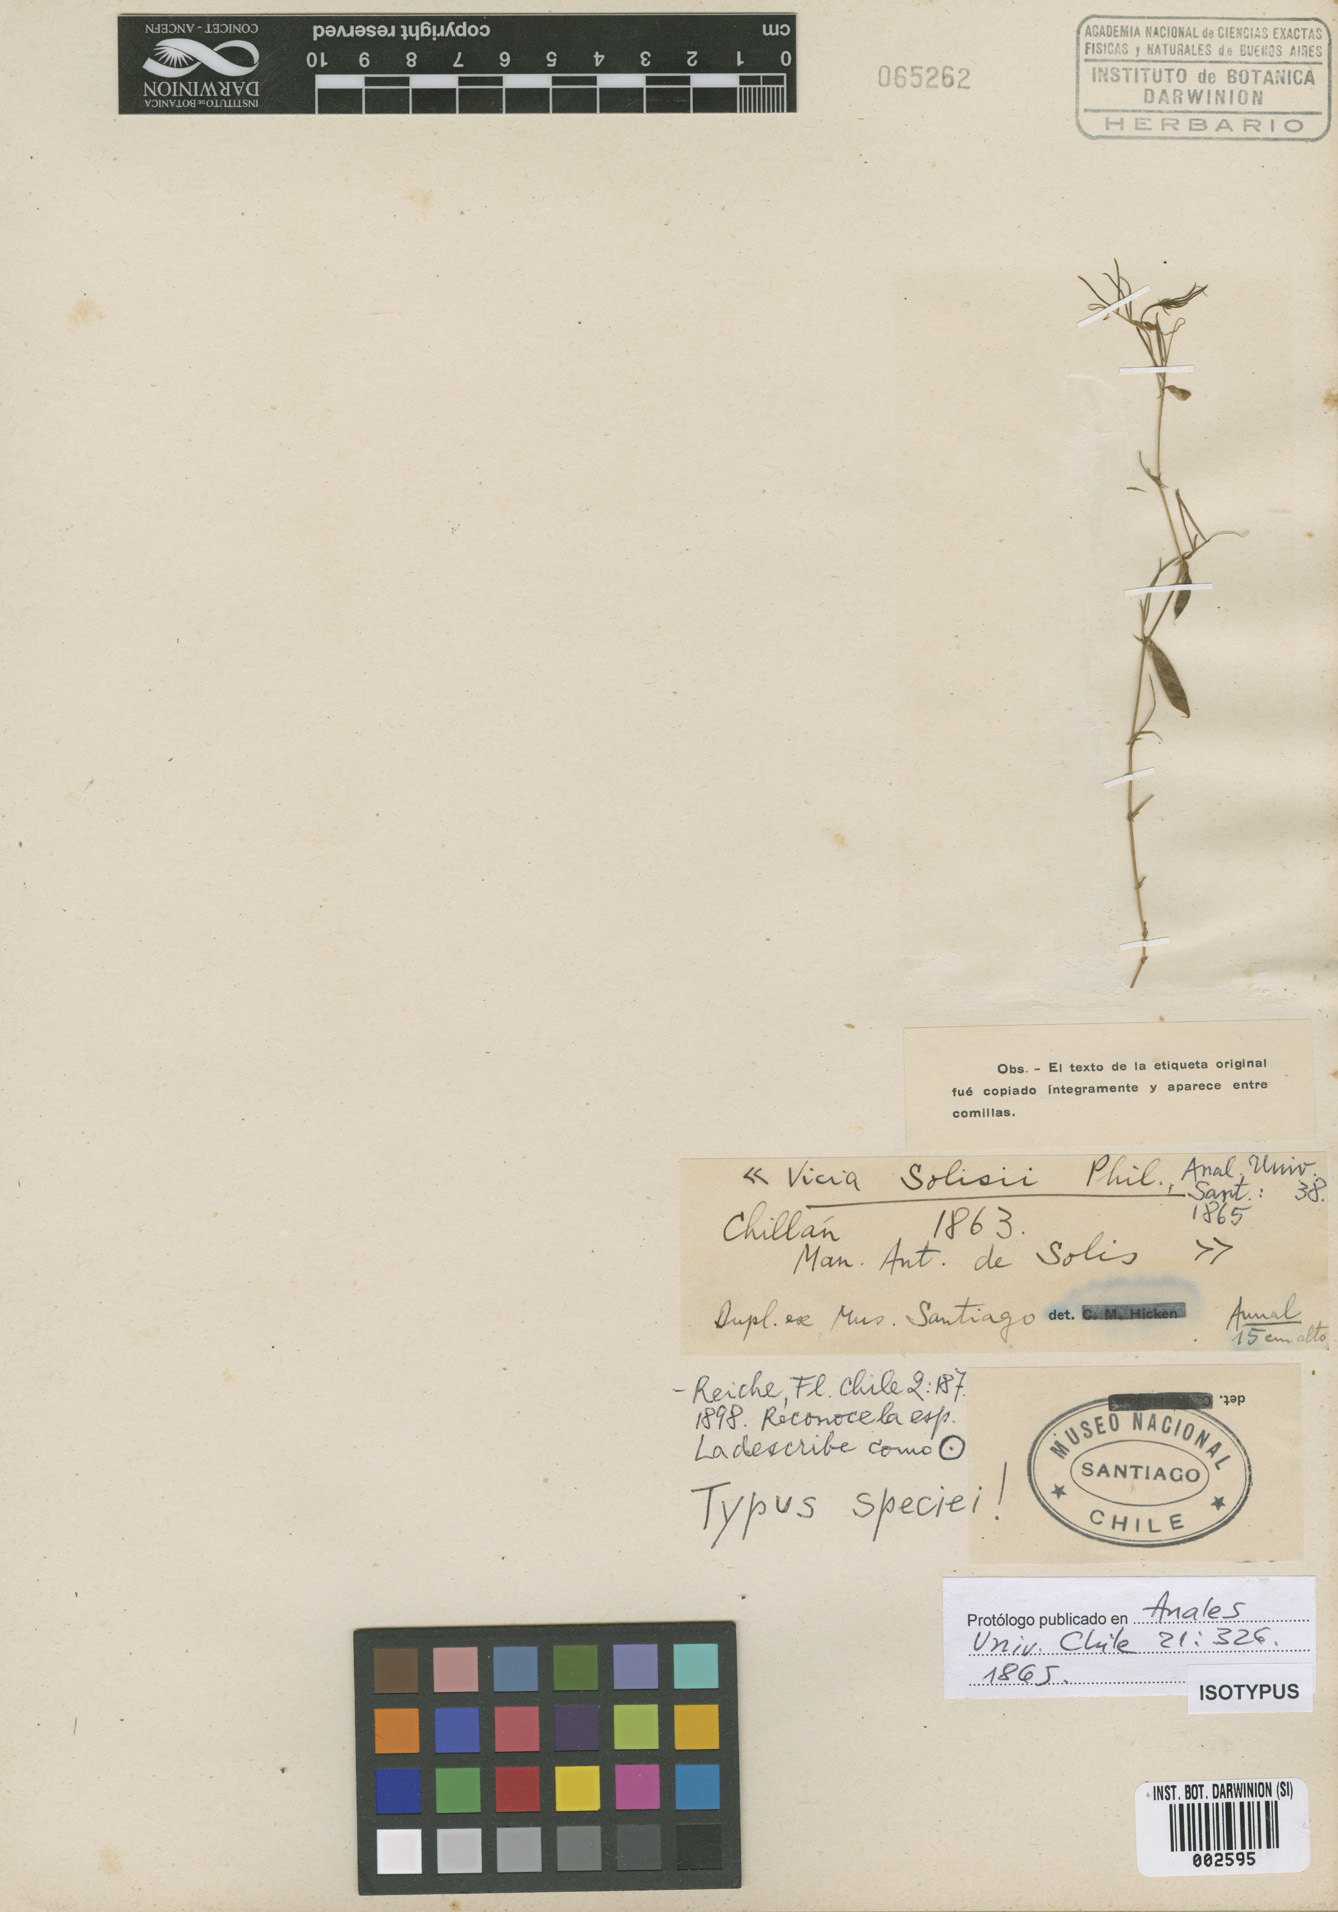 cm 0 1 2 3 4 5 6 7 8 9 10
copyright reserved
INSTITUTO DE BOTANICA
DARWINION
CONICET - ANCEFN
065262
ACADEMIA NACIONAL de CIENCIAS EXACTAS
FISICAS y NATURALES de BUENOS AIRES
INSTITUTO de BOTANICA
DARWINION
HERBARIO
Obs. - El texto de la etiqueta original
fué copiado íntegramente y aparece entre
comillas.
« Vicia Solisii Phil., Anal. Univ.
Sant.: 38.
1865
Chillán 1863.
Man. Ant. de Solis »
Dupl. ex Mus. Santiago det. C. M. Hicken Annal
15 cm alto
- Reiche, Fl. Chile 2: 187.
1898. Reconoce la esp.
La describe como ⊙
Typus speciei!
det.
MUSEO NACIONAL
SANTIAGO
★ CHILE ★
Protólogo publicado en Anales
Univ. Chile 21: 326.
1865.
ISOTYPUS
INST. BOT. DARWINION (SI)
002595